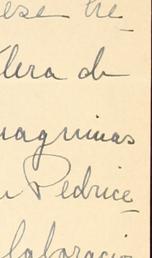 ese tre-
lera de
maquinas
Pedrice
laboració